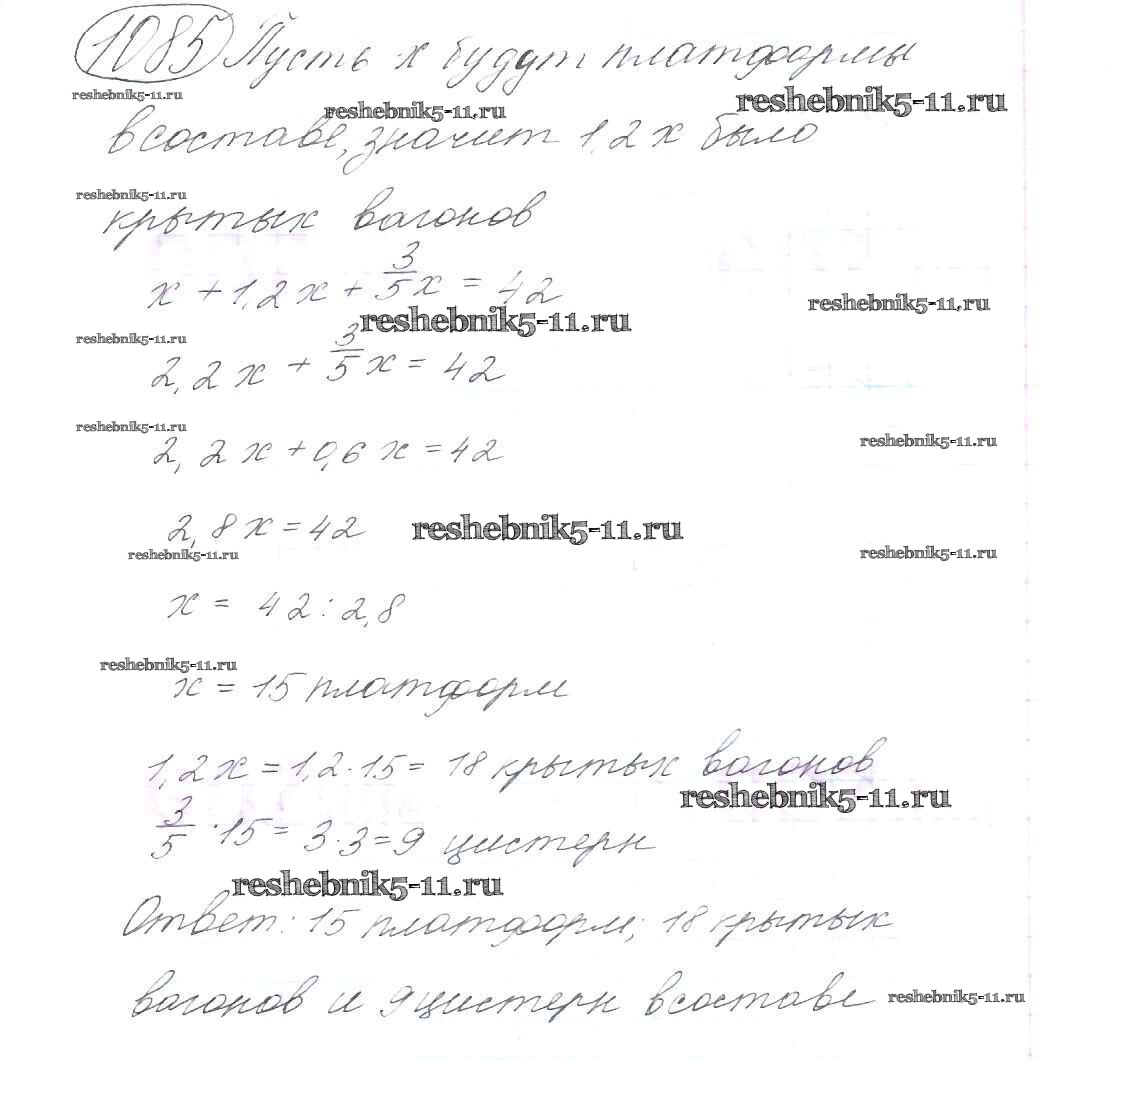 1085 Пусть x будут платформы
reshebnik5-11.ru reshebnik5-11.ru reshebnik5-11.ru
в составе, значит 1,2x было
reshebnik5-11.ru
крытых вагонов
x + 1,2x + 3/5x = 42
reshebnik5-11.ru reshebnik5-11.ru
reshebnik5-11.ru
2,2x + 3/5x = 42
reshebnik5-11.ru reshebnik5-11.ru
2,2x + 0,6x = 42
2,8x = 42 reshebnik5-11.ru
reshebnik5-11.ru reshebnik5-11.ru
x = 42 : 2,8
reshebnik5-11.ru
x = 15 платформ
1,2x = 1,2 · 15 = 18 крытых вагонов
reshebnik5-11.ru
3/5 · 15 = 3 · 3 = 9 цистерн
reshebnik5-11.ru
Ответ: 15 платформ; 18 крытых
вагонов и 9 цистерн в составе reshebnik5-11.ru